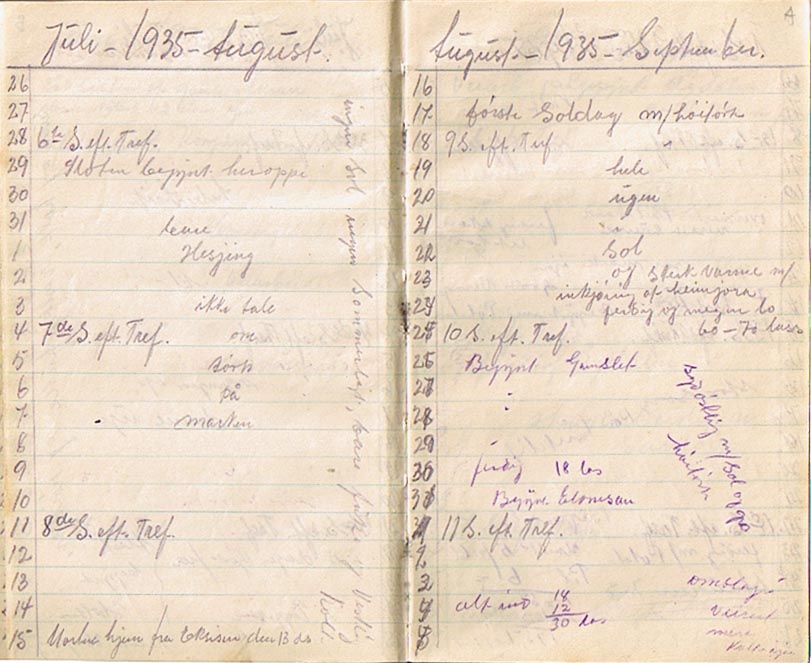 Juli - 1935 - August.
26
27
28 6te S. eft. Tref.
29 begynt heroppe
30
31 bare
1 Hesjing
2
3 ikke tale
4 7de S. eft. Tref. om
5 tørk
6 på
7 marken
8
9
10
11 8de S. eft. Tref.
12
13
14
15 hjem fra den 13 ds
ingen Sol ingen Sommerluft, bare
August - 1935 - September.
4
16
17 første Soldag m/høitørk
18 9 S. eft. Tref
19 hele
20 ugen
21
22 Sol
23 og Sterk Varme m/
24 inkjøring af heimjora
ferdig og
25 10 S. eft. Tref. 60 - 70 lass
26 Begynt
27
28
29
30 ferdig 18 las
31 Begynt
1 11 S. eft. Tref.
2
3
4 alt ind 18
12
30 las
5
m/Sol og go
høitørk
omslag i
Veiret
mere